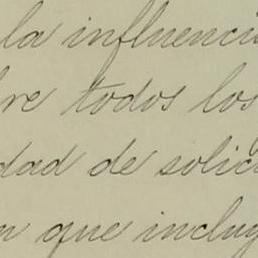 la influenci
re todos los
dad de solic
n que incluy